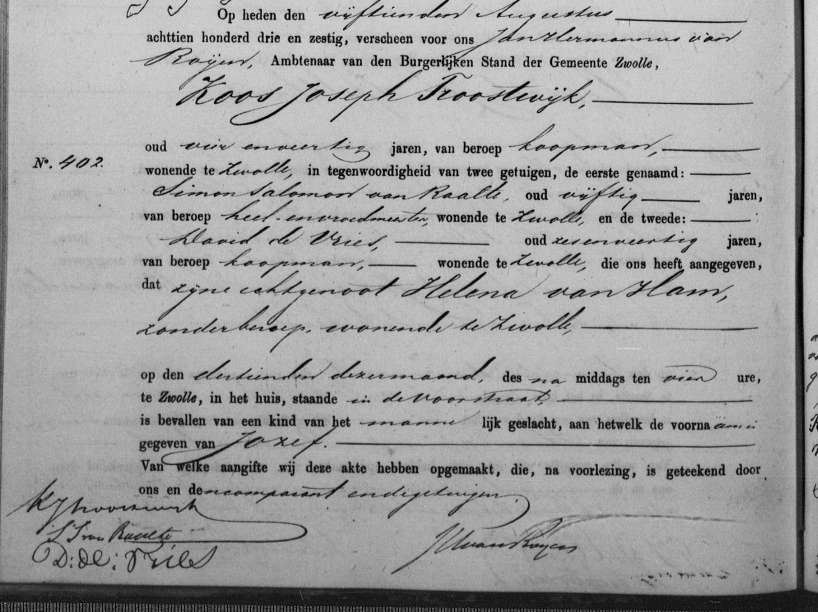 Op heden den vijftienden Augustus
achttien honderd drie en zestig, verscheen voor ons Jan Hermannus van
Roijen, Ambtenaar van den Burgerlijken Stand der Gemeente Zwolle,
Koos Joseph Troostwijk,
oud vier en veertig jaren, van beroep koopman,
No. 402.
wonende te Zwolle, in tegenwoordigheid van twee getuigen, de eerste genaamd:
Simon Salomon van Raalte, oud vijftig jaren,
van beroep heel- en vroedmeester, wonende te Zwolle, en de tweede:
David de Vries, oud zes en veertig jaren,
van beroep koopman, wonende te Zwolle, die ons heeft aangegeven,
dat zijne echtgenoot Helena van Ham,
zonder beroep, wonende te Zwolle,
op den dertienden dezer maand, des na middags ten vier ure,
te Zwolle, in het huis, staande in de Voorstraat,
is bevallen van een kind van het manne lijk geslacht, aan hetwelk de voorna am is
gegeven van Jozef.
Van welke aangifte wij deze akte hebben opgemaakt, die, na voorlezing, is geteekend door
ons en den comparant en de getuigen
KJTroostwijk
S S van Raalte
D: de: Vries
JH van Roijen